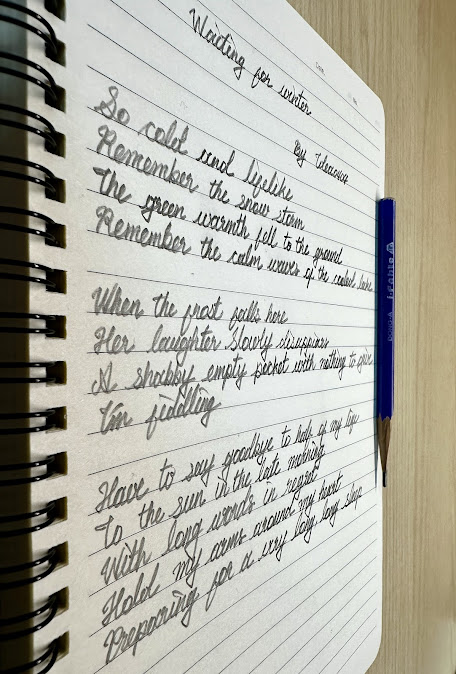 Waiting for winter
By
So cold and lifelike
Remember the snow storm
The green warmth fell to the ground
Remember the calm waves of the coolest lake
When the frost falls here
Her laughter slowly disappears
A shabby empty pocket with nothing to give
I'm fiddling
Have to say goodbye to half of my life
To the sun in the late morning
With long words in regret
Hold my arms around my heart
Preparing for a very long long sleep